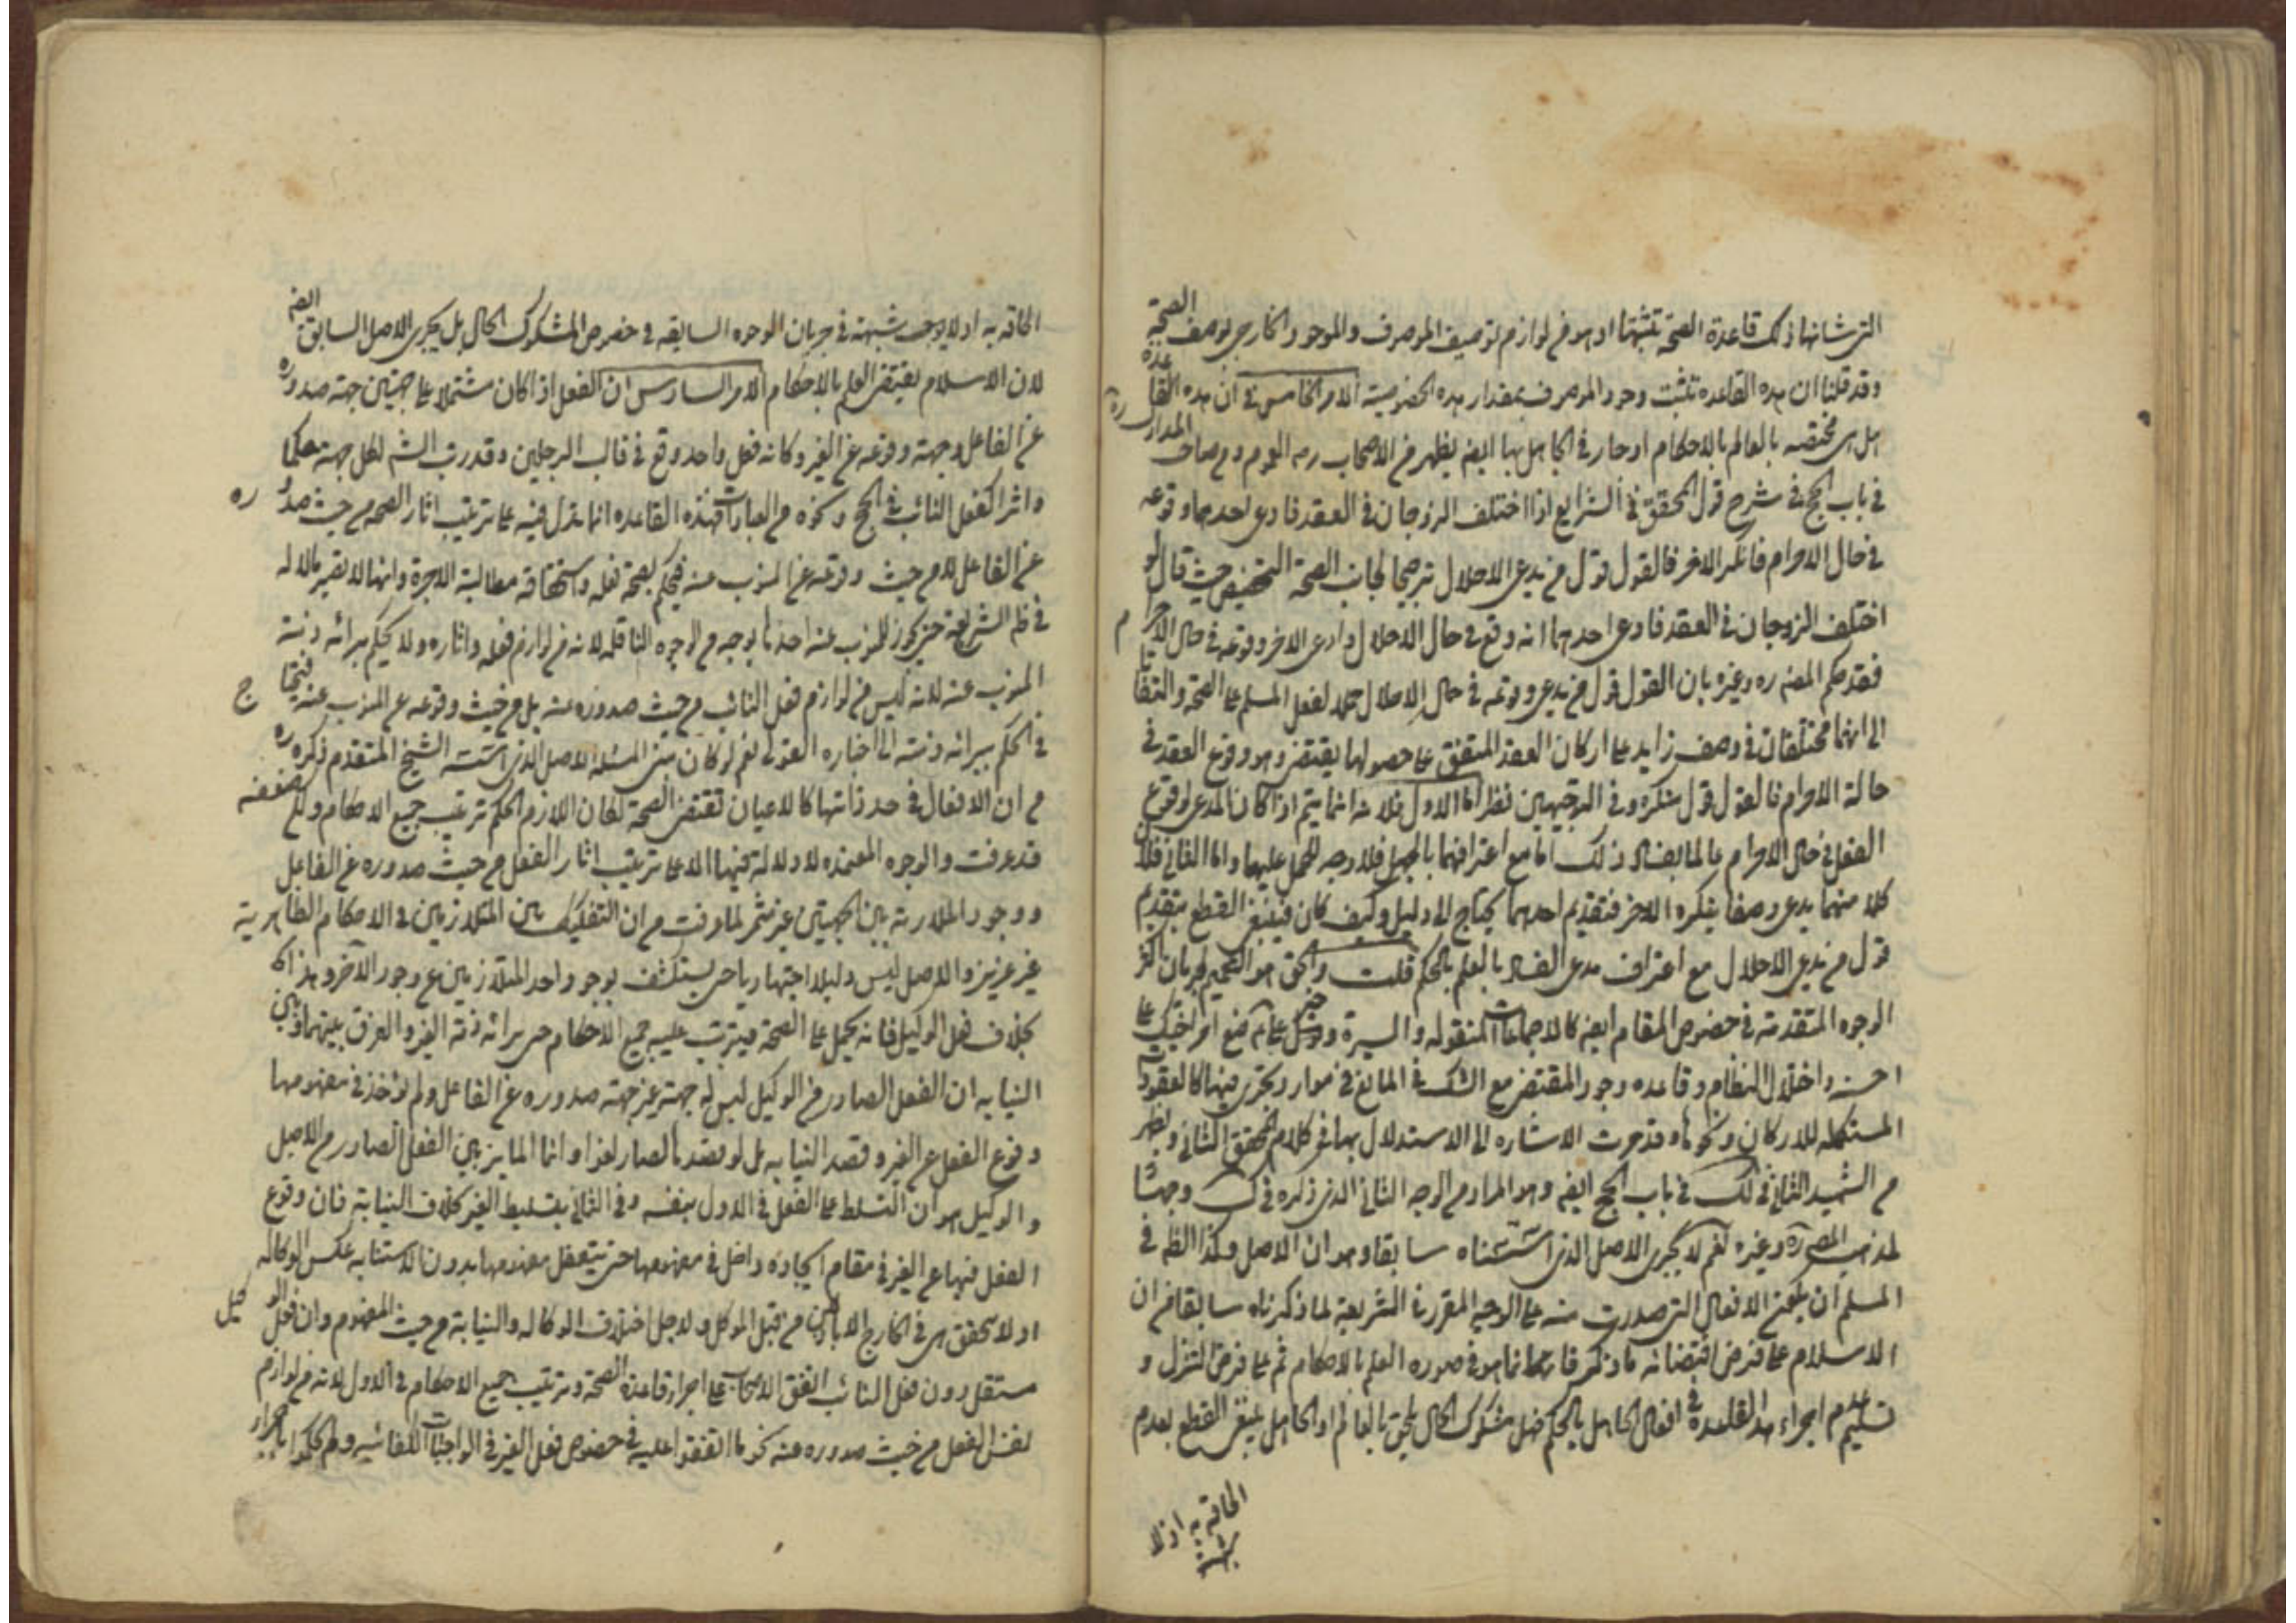 التى شانها ذلك قاعدة الصحة تثبتها اذ هو من لوازم توصيف الموصوف والموجود الخارجى بوصف الصحة
وقد قلنا ان هذه القاعده تثبت وجود الموصوف بمقدار هذه الخصوصية الامر الخامس فى ان هذه القاعده
هل هى مختصه بالعالم بالاحكام او جار فى الجاهل بها ايضا يظهر من الاصحاب ره العموم و عن صاحب المدارك ره
فى باب الحج فى شرح قول المحقق فى الشرايع اذا اختلف الزوجان فى العقد فادعى احدهما وقوعه
فى حال الاحرام فانكر الاخر فالقول قول من يدعى الاحلال ترجيحا لجانب الصحة التخصيص حيث قال لو
اختلف الزوجان فى العقد فادعى احدهما انه وقع فى حال الاحلال وادعى الاخر وقوعه فى حال الاحرام
فقد حكم المص ره وغيره بان القول قول من يدعى وقوعه فى حال الاحلال حملا لفعل المسلم على الصحة والتفاتا
الى انهما مختلفان فى وصف زايد على اركان العقد المتفق على حصولها يقتضى وهو وقوع العقد فى
حالة الاحرام فالقول قول منكره وفى الوجهين نظر اما الاول فلانه انما يتم اذا كان المدعى لوقوع
الفعل فى حال الاحرام عالما بفساد ذلك اما مع اعترافهما بالجهل فلا وجه للحمل عليها واما الثانى فلان
كلا منهما يدعى وصفا ينكره الاخر فتقديم احدهما يحتاج الى دليل وكيف كان فينبغى القطع بتقديم
قول من يدعى الاحلال مع اعتراف مدعى الفساد بالعلم بالحكم قلت والحق هو التعميم لجريان اكثر
الوجوه المتقدمة فى خصوص المقام ايضا كالاجماعات المنقوله والسيرة وخبر ضع امر اخيك على
احسنه واختلال النظام وقاعده وجود المقتضى مع الشك فى المانع فى موارد يجرى فيها كالعقود
المستكمله للاركان ونحوها وقد جرت الاشاره الى الاستدلال بها فى كلام المحقق الثانى ويظهر
من الشهيد الثانى فى لك فى باب الحج ايضا وهو المراد من الوجه الثانى الذى ذكره فى ك وجها
لمذهب المص ره وغيره نعم لا يجرى الاصل الذى اسسناه سابقا وهو ان الاصل وكذا الظ فى
المسلم ان يكون الافعال التى صدرت منه على الوجه المقرر فى الشريعة لما ذكرناه سابقا من ان
الاسلام على فرض اقتضائه ما ذكر فانما هو فى صوره العلم بالاحكام ثم على فرض التنزل و
تسليم عدم اجراء هذه القاعدة فى افعال الجاهل بالحكم فهل مشكوك الحال يلحق بالعالم او الجاهل ينبغى القطع بعدم
الحاقه به اذ لا
شبهة
الحاقه به اذ لا يوجب شبهة فى جريان الوجوه السابقه فى خصوص المشكوك الحال بل يجرى الاصل السابق ايضا
لان الاسلام يقتضى العلم بالاحكام الامر السادس ان الفعل اذا كان مشتملا على جهتين جهة صدوره
عن الفاعل وجهة وقوعه عن الغير وكانه فعل واحد وقع فى قالب الرجلين وقد رتب الش لكل جهة حكما
واثرا كفعل النائب فى الحج ونحوه من العبادات فهذه القاعده انما تدل فيه على ترتيب اثار الصحه من حيث صدوره
عن الفاعل لا من حيث وقوعه عن المنوب عنه فيحكم بصحة فعله واستحقاقه مطالبة الاجرة
فى ظ الشريعة حتى يجوز للمنوب عنه اخذ ما بوجه من الوجوه الناقله لانه من لوازم فعله واثاره ولا يحكم ببرائه ذمة
المنوب عنه لانه ليس من لوازم فعل النائب من حيث صدوره منه بل من حيث وقوعه عن المنوب عنه فيحتاج
فى الحكم ببرائه ذمته الى اخباره القولى نعم لو كان مبنى المسئله الاصل الذى اسسه الشيخ المتقدم ذكره ره
من ان الافعال فى حد ذاتها كالاعيان تقتضى الصحة لكان اللازم الحكم بترتيب جميع الاحكام ولكن ضعفه
قد عرفت والوجوه المعتمده لا دلالة فيها الا على ترتيب اثار الفعل من حيث صدوره عن الفاعل
ووجود الملازمة بين الجهتين غير مثمر لما عرفت من ان التفكيك بين المتلازمين فى الاحكام الظاهرية
غير عزيز والاصل ليس دليلا اجتهاديا حتى يستكشف بوجود احد المتلازمين عن وجود الاخر وهذا
بخلاف فعل الوكيل فانه يحمل على الصحة فيترتب عليه جميع الاحكام حتى برائه ذمة الغير والفرق بينها وبين
النيابه ان الفعل الصادر من الوكيل ليس له جهة غير جهة صدوره عن الفاعل ولم يؤخذ فى مفهومها
وقوع الفعل عن الغير وقصد النيابه بل لو قصدها لصار لغوا وانما المايز بين الفعل الصادر من الاصيل
والوكيل هو ان التسلط على الفعل فى الاول بنفسه وفى الثانى بتسليط الغير بخلاف النيابة فان وقوع
الفعل فيها عن الغير فى مقام ايجاده داخل فى مفهومها حتى يتعقل مفهومها بدون الاستنابه عكس الوكاله
اذ لا يتحقق هى فى الخارج الا بالاذن من قبل الموكل ولاجل اختلاف الوكاله والنيابة من حيث المفهوم وان فعل الوكيل
مستقل دون فعل النائب اتفق الاصحاب على اجراء قاعدة الصحة وترتيب جميع الاحكام فى الاول لانه من لوازم
نفس الفعل من حيث صدوره عنه نحو ما اتفقوا عليه فى خصوص فعل الغير فى الواجبات الكفائيه ولم يحكموا باجراء